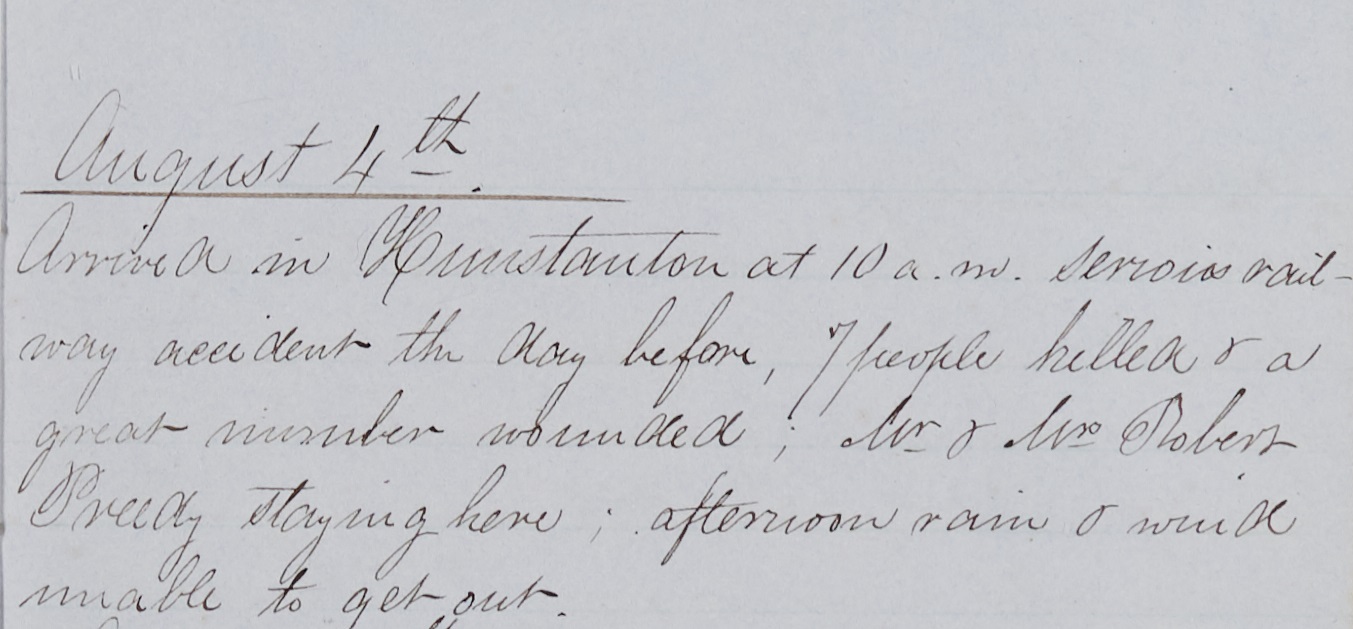 August 4th.
Arrived in Hunstanton at 10 a.m. serious rail-
way accident the day before, 7 people killed & a
great number wounded ; Mr & Mrs Robert
Preedy staying here ; afternoon rain & wind
unable to get out.